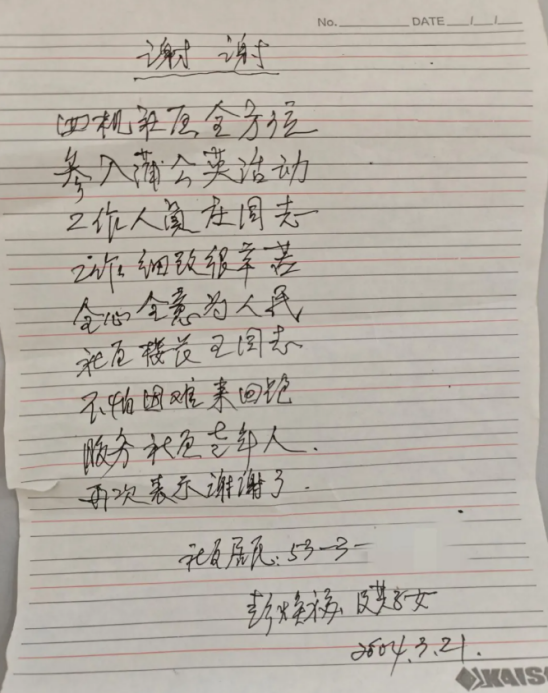 No. DATE / /
谢谢
四机社区全方位
参入蒲公英活动
工作人员左同志
工作细致很辛苦
全心全意为人民
社区楼长王同志
不怕困难来回跑
服务社区老年人.
再次表示谢谢了.
社区居民: 53-3-
彭焕 及其子女
3.21.
KAIS